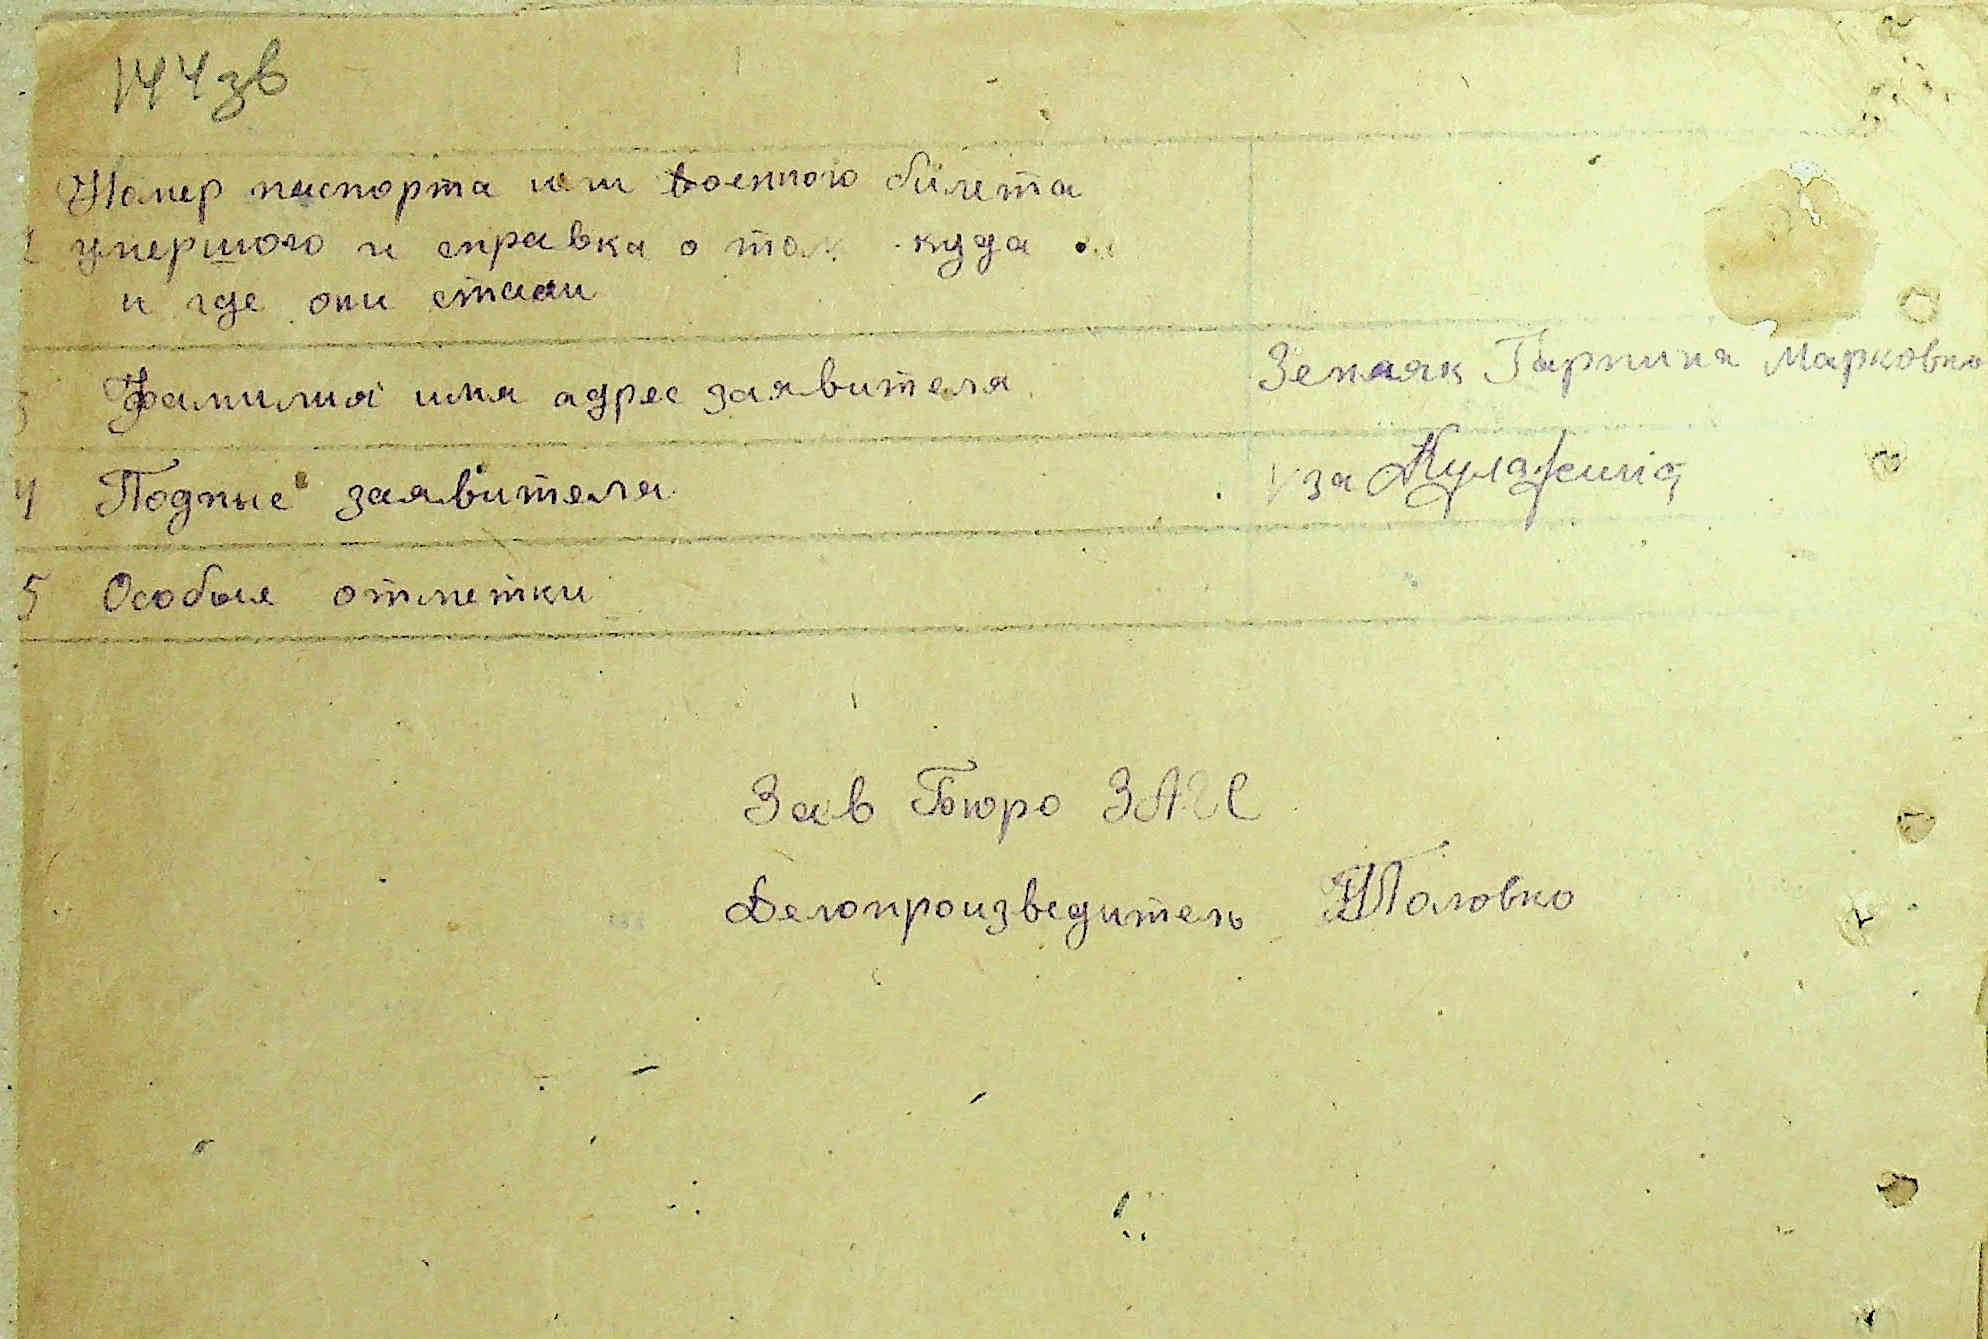 144 зв
Номер паспорта или военного билета
2 умершого и справка о том куда
и где они стали
3 Фамилия имя адрес заявителя Земляк Гарпина Марковна
4 Подпис заявителя за
5 Особые отметки
Зав Бюро ЗАГС
Делопроизведитель Головко